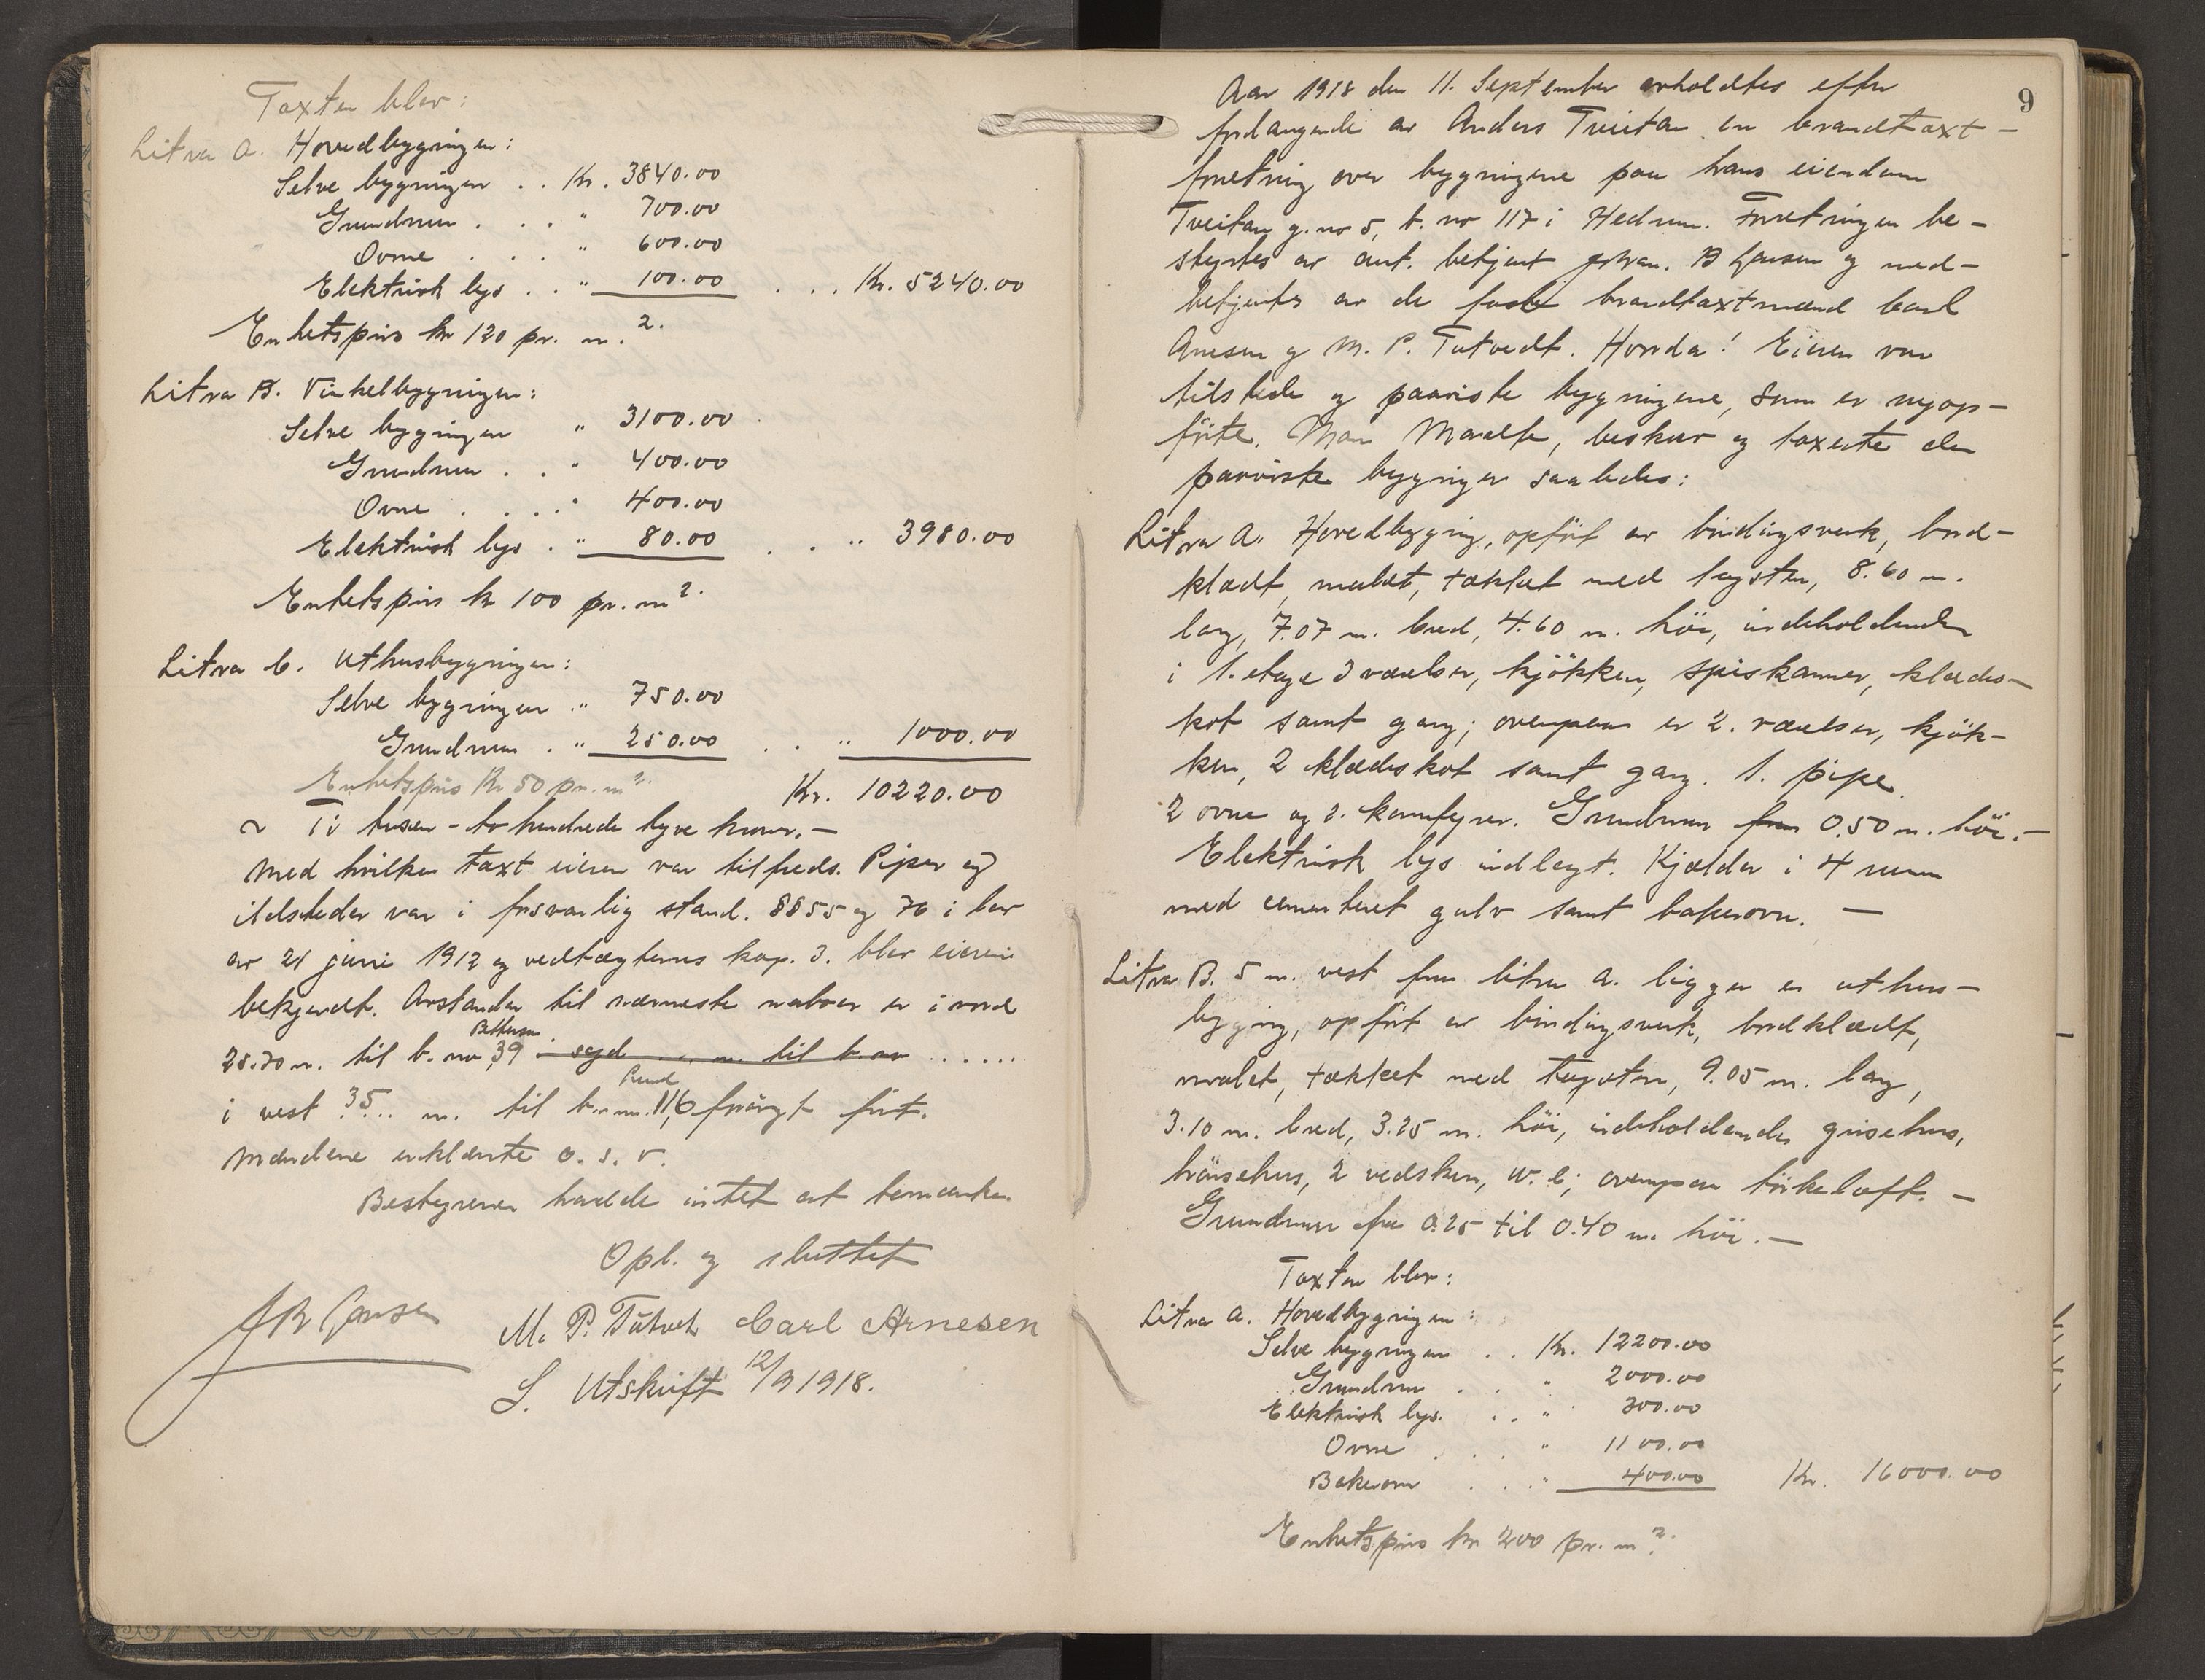 Taxten blev:
Litra A. Hovedbygningen:
Selve bygningen . . Kr. 3840.00
Grundmur . . . " 700.00
Ovne . . . " 600.00
Elektrisk lys . . " 100.00 . . . Kr. 5240.00
Enhetspris kr 120 pr. m.2.
Litra B. Vinkelbygningen:
Selve bygningen " 3100.00
Grundmur . . " 400.00
Ovne . . . . " 400.00
Elektrisk lys . " 80.00 . . " 3980.00
Enhetspris kr 100 pr. m2.
Litra C. Uthusbygningen:
Selve bygningen .. " 750.00
Grundmur . " 250.00 . . " 1000.00
Enhetspris Kr 50 pr. m2.
Kr. 10220.00
~ Ti tusen - to hundrede tyve kroner. —
Med hvilken taxt eieren var tilfreds. Piper og
ildsteder var i forsvarlig stand. §§ 55 og 76 i lov
av 21 juni 1912 og vedtægternes kap. 3. blev eieren
bekjendt. Avstanden til nærmeste naboer er i nord
28.70 m. til b. no 39 syd . . . m. til b. no ......
i vest 35... m. til b. no. 116 forövrigt frit.
Mændene erklærte o. s. v.
Bestyreren hadde intet at bemærke.
Opl. og sluttet
J B Jansen
M. P. Tutvedt Carl Arnesen
S. Utskrift 12/9 1918.
9
Aar 1918 den 11. September avholdtes efter
forlangende av Anders Tveitan en brandtaxt-
forretning over bygningene paa hans eiendom
Tveitan g. no 5, b. no 117 i Hedrum. Forretningen be-
styrtes av aut. betjent Johan. B Jansen og med-
betjentes av de faste brandtaxtmænd Carl
Arnesen og M. P. Tutvedt. Hvorda! Eieren var
tilstede og paaviste bygningene, som er nyop-
förte. Man maalte, beskrev og taxerte de
paaviste bygninger saaledes:
Litra A. Hovedbygning, opfört av bindingsverk, bord-
klædt, malet, tækket med tagsten, 8.60 m.
lang, 7.07 m. bred, 4.60 m. höi, indeholdende
i 1. etage 3 værelser, kjökken, spiskammer, klædes-
kot samt gang; ovenpaa er 2. værelser, kjök-
ken, 2 klædeskot samt gang. 1. pipe.
2 ovne og 2. komfyrer. Grundmur fra 0.50 m. höi. —
Elektrisk lys indlagt. Kjælder i 4 rum
med cementeret gulv samt bakerovn. —
Litra B. 5 m. vest fra litra A. ligger en uthus-
bygning, opfört av bindingsverk, bordklædt,
malet, tækket med tagsten, 9.05 m. lang,
3.10 m. bred, 3.25 m. höi, indeholdende grisehus,
hönsehus, 2 vedskur, W. C; ovenpaa törkeloft. —
Grundmur fra 0.25 til 0.40 m. höi. —
Taxten blev:
Litra A. Hovedbygningen:
Selve bygningen . . Kr. 12200.00
Grundmur . . " 2000.00
Elektrisk lys. . . " 300.00
Ovne . . . " 1100.00
Bakerovn . . . " 400.00 Kr. 16000.00
Enhetspris kr 200 pr. m2.